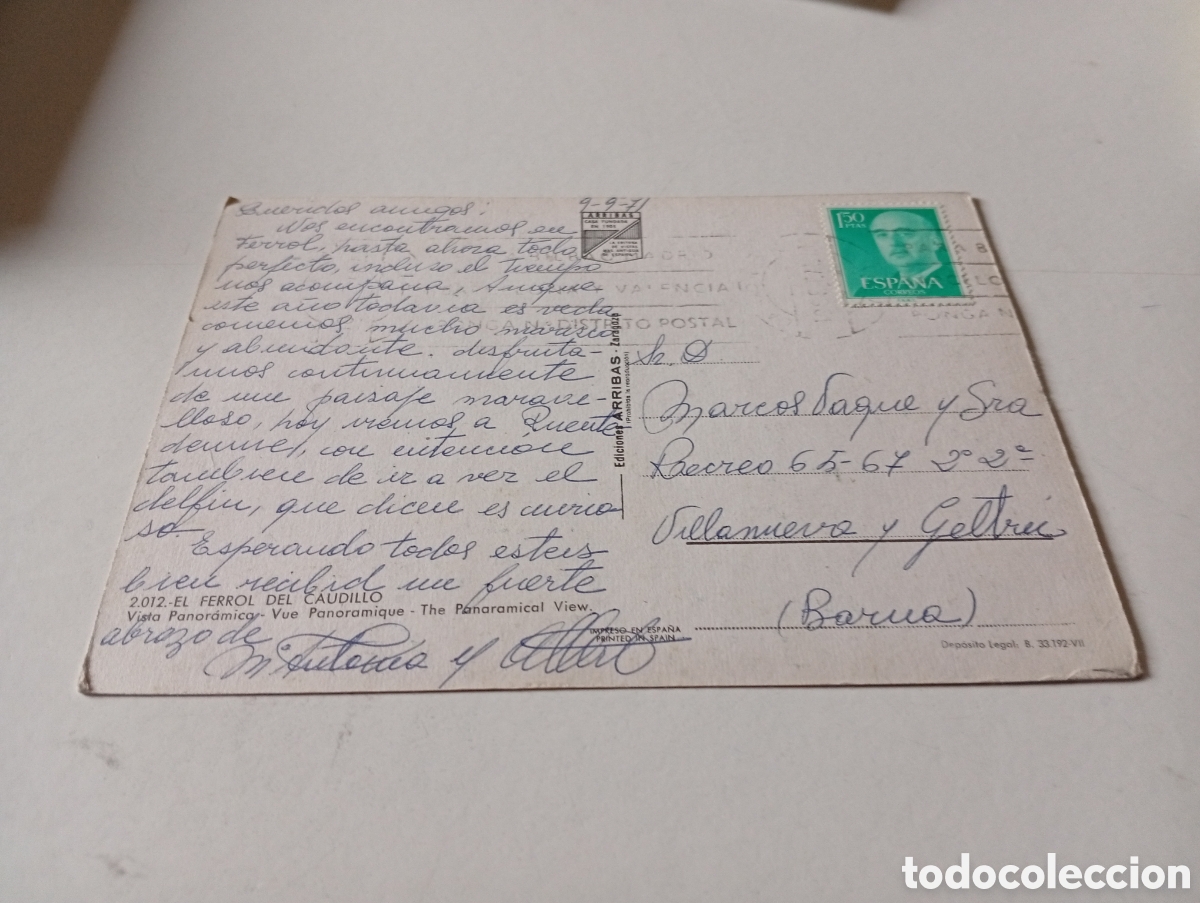 9-9-71
Queridos amigos:
Nos encontramos en
Ferrol, hasta ahora todo
perfecto, incluso el tiempo
nos acompaña, Aunque
este año todavia es veda
comemos mucho marisco
y abundante. disfruta-
mos continuamente
de un paisaje marave-
lloso, hoy iremos a Puente
deume, con intención
tambien de ir a ver el
delfin, que dicen es curio
so.
Esperando todos esteis
bien recibid un fuerte
abrazo de
Mª Antonia y
2.012.-EL FERROL DEL CAUDILLO
Vista Panorámica - Vue Panoramique - The Panaramical View.
ARRIBAS
CASA FUNDADA
Ediciones ARRIBAS - Zaragoza
(Prohibida la reproducción)
IMPRESO EN ESPAÑA
PRINTED IN SPAIN
1,50
PTAS
ESPAÑA
CORREOS
VALENCIA
DISTRITO POSTAL
PONGA N
Sr. D.
Marcos Vaque y Sra
Recreo 65-67 2º 2ª
Villanueva y Geltrú
(Barna)
Depósito Legal: B. 33.192-VII
todocoleccion